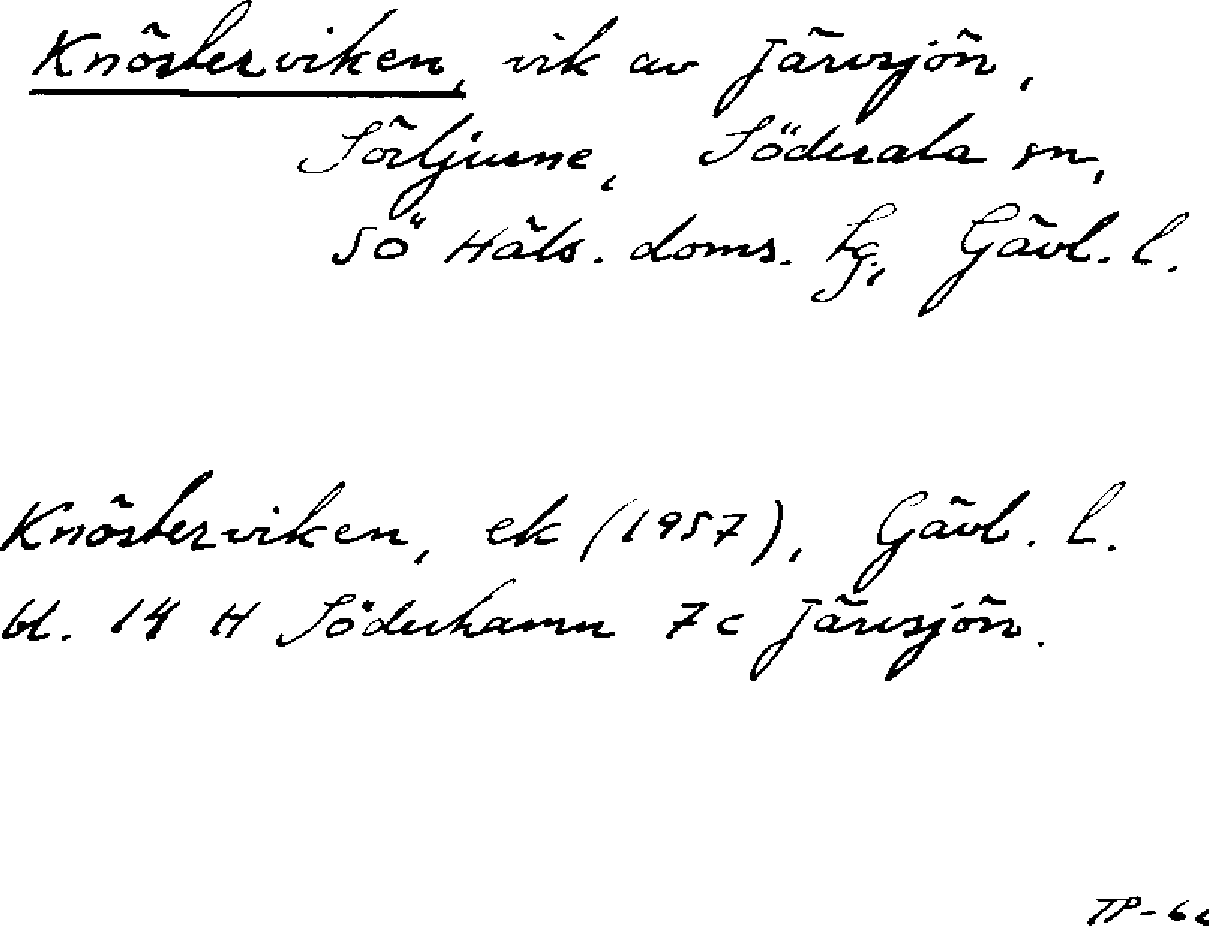 Knösterviken, vik av Järvsjön,
Sörljusne, Söderala sn,
SÖ Häls. doms. tg, Gävl. l.
Knösterviken, ek (1957), Gävl. l.
bl. 14 H Söderhamn 7c Järvsjön.